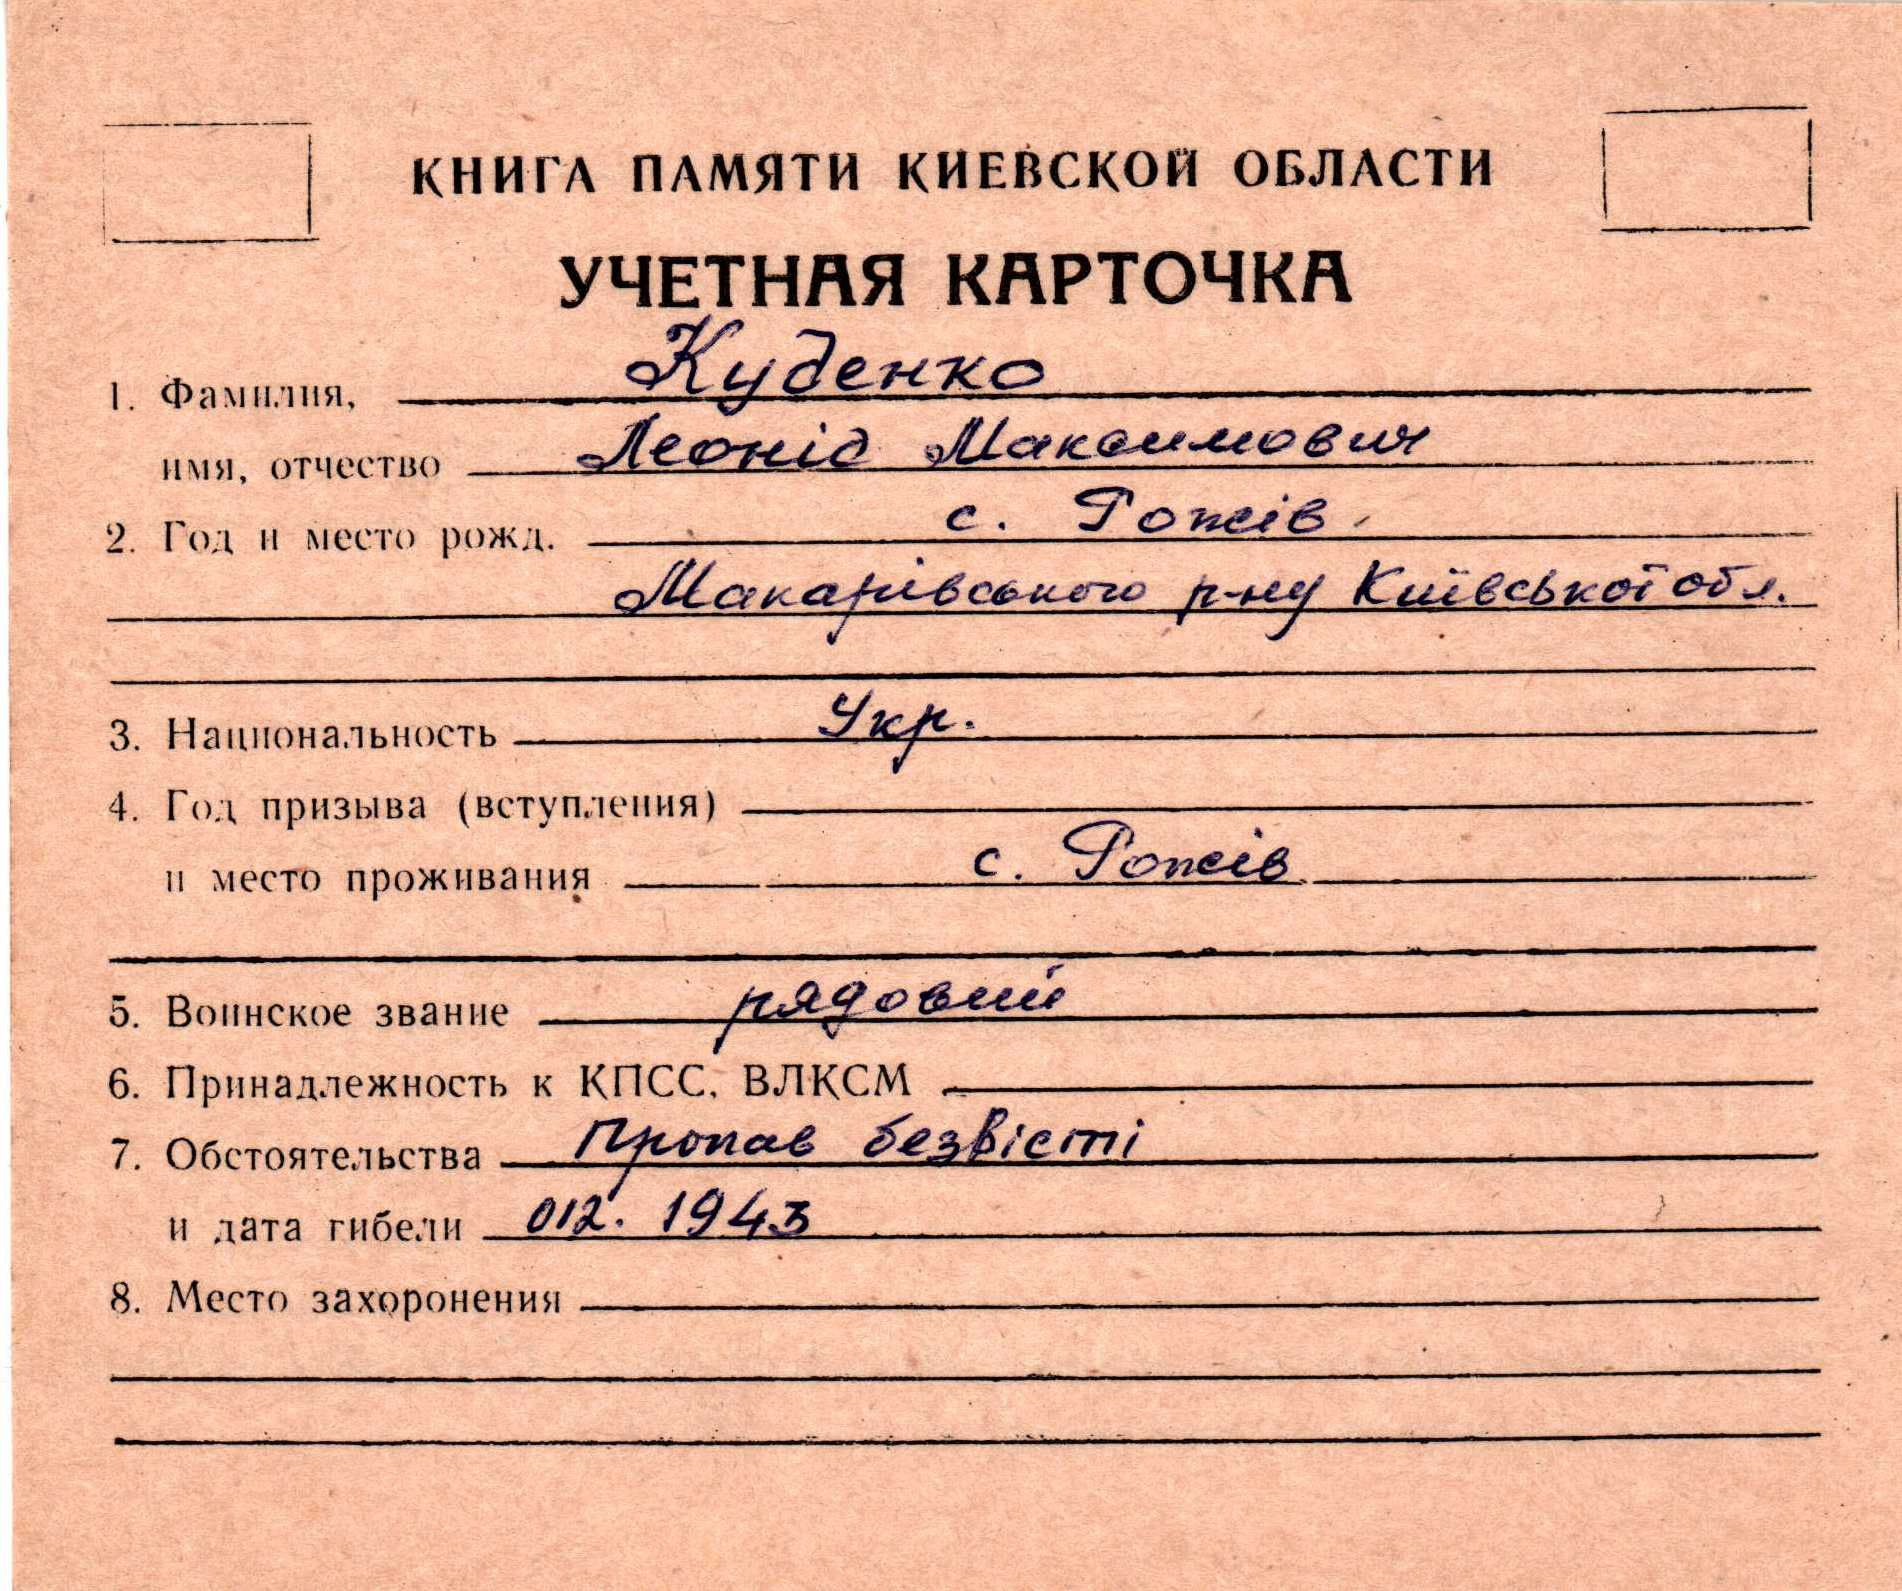 КНИГА ПАМЯТИ КИЕВСКОЙ ОБЛАСТИ
УЧЕТНАЯ КАРТОЧКА
1. Фамилия, Куденко
имя, отчество Леонід Максимович
2. Год и место рожд. с. Рожів
Макарівського р-ну Київської обл.
3. Национальность Укр.
4. Год призыва (вступления)
и место проживания с. Рожів
5. Воинское звание рядовий
6. Принадлежность к КПСС, ВЛКСМ
7. Обстоятельства Пропав безвісті
и дата гибели 012. 1943
8. Место захоронения